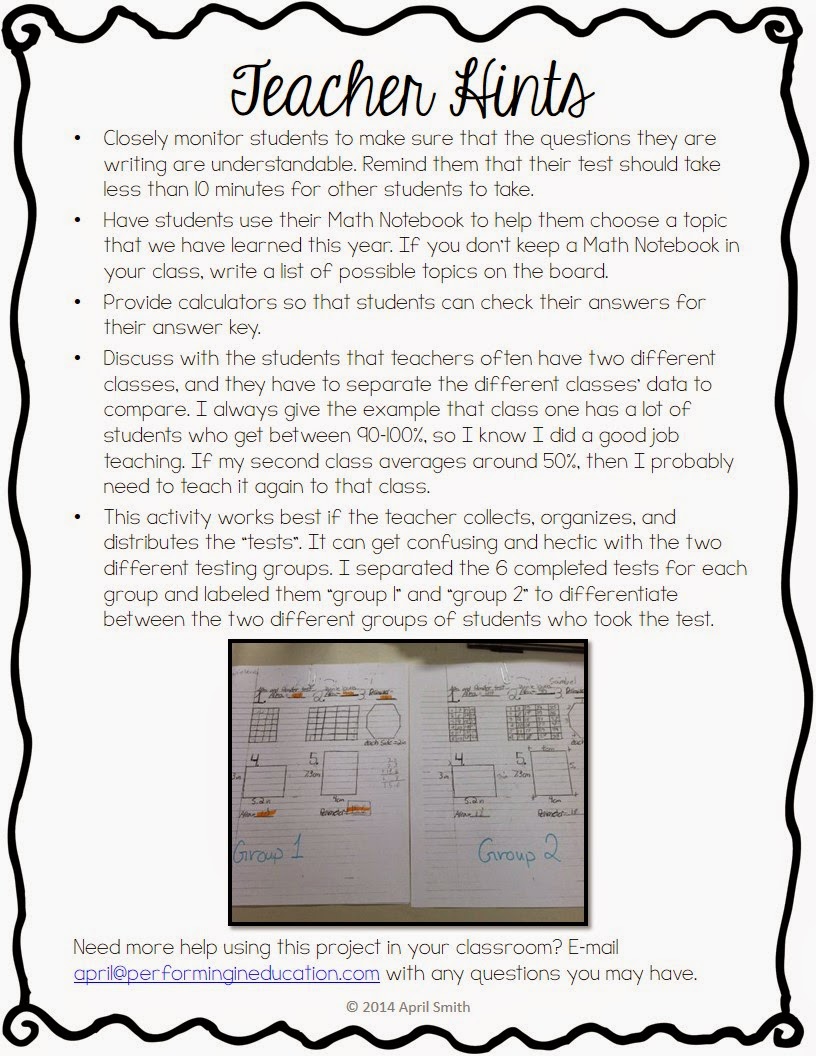 Teacher Hints
• Closely monitor students to make sure that the questions they are
writing are understandable. Remind them that their test should take
less than 10 minutes for other students to take.
• Have students use their Math Notebook to help them choose a topic
that we have learned this year. If you don't keep a Math Notebook in
your class, write a list of possible topics on the board.
• Provide calculators so that students can check their answers for
their answer key.
• Discuss with the students that teachers often have two different
classes, and they have to separate the different classes' data to
compare. I always give the example that class one has a lot of
students who get between 90-100%, so I know I did a good job
teaching. If my second class averages around 50%, then I probably
need to teach it again to that class.
• This activity works best if the teacher collects, organizes, and
distributes the "tests". It can get confusing and hectic with the two
different testing groups. I separated the 6 completed tests for each
group and labeled them "group 1" and "group 2" to differentiate
between the two different groups of students who took the test.
1 2 3
4. 5.
3in 23cm
5.2in 9cm
Area Perimeter
Group 1
1 2 3
4. 5.
3in 23cm
5.2in 9cm
Area Perimeter
Group 2
Need more help using this project in your classroom? E-mail
april@performingineducation.com with any questions you may have.
© 2014 April Smith